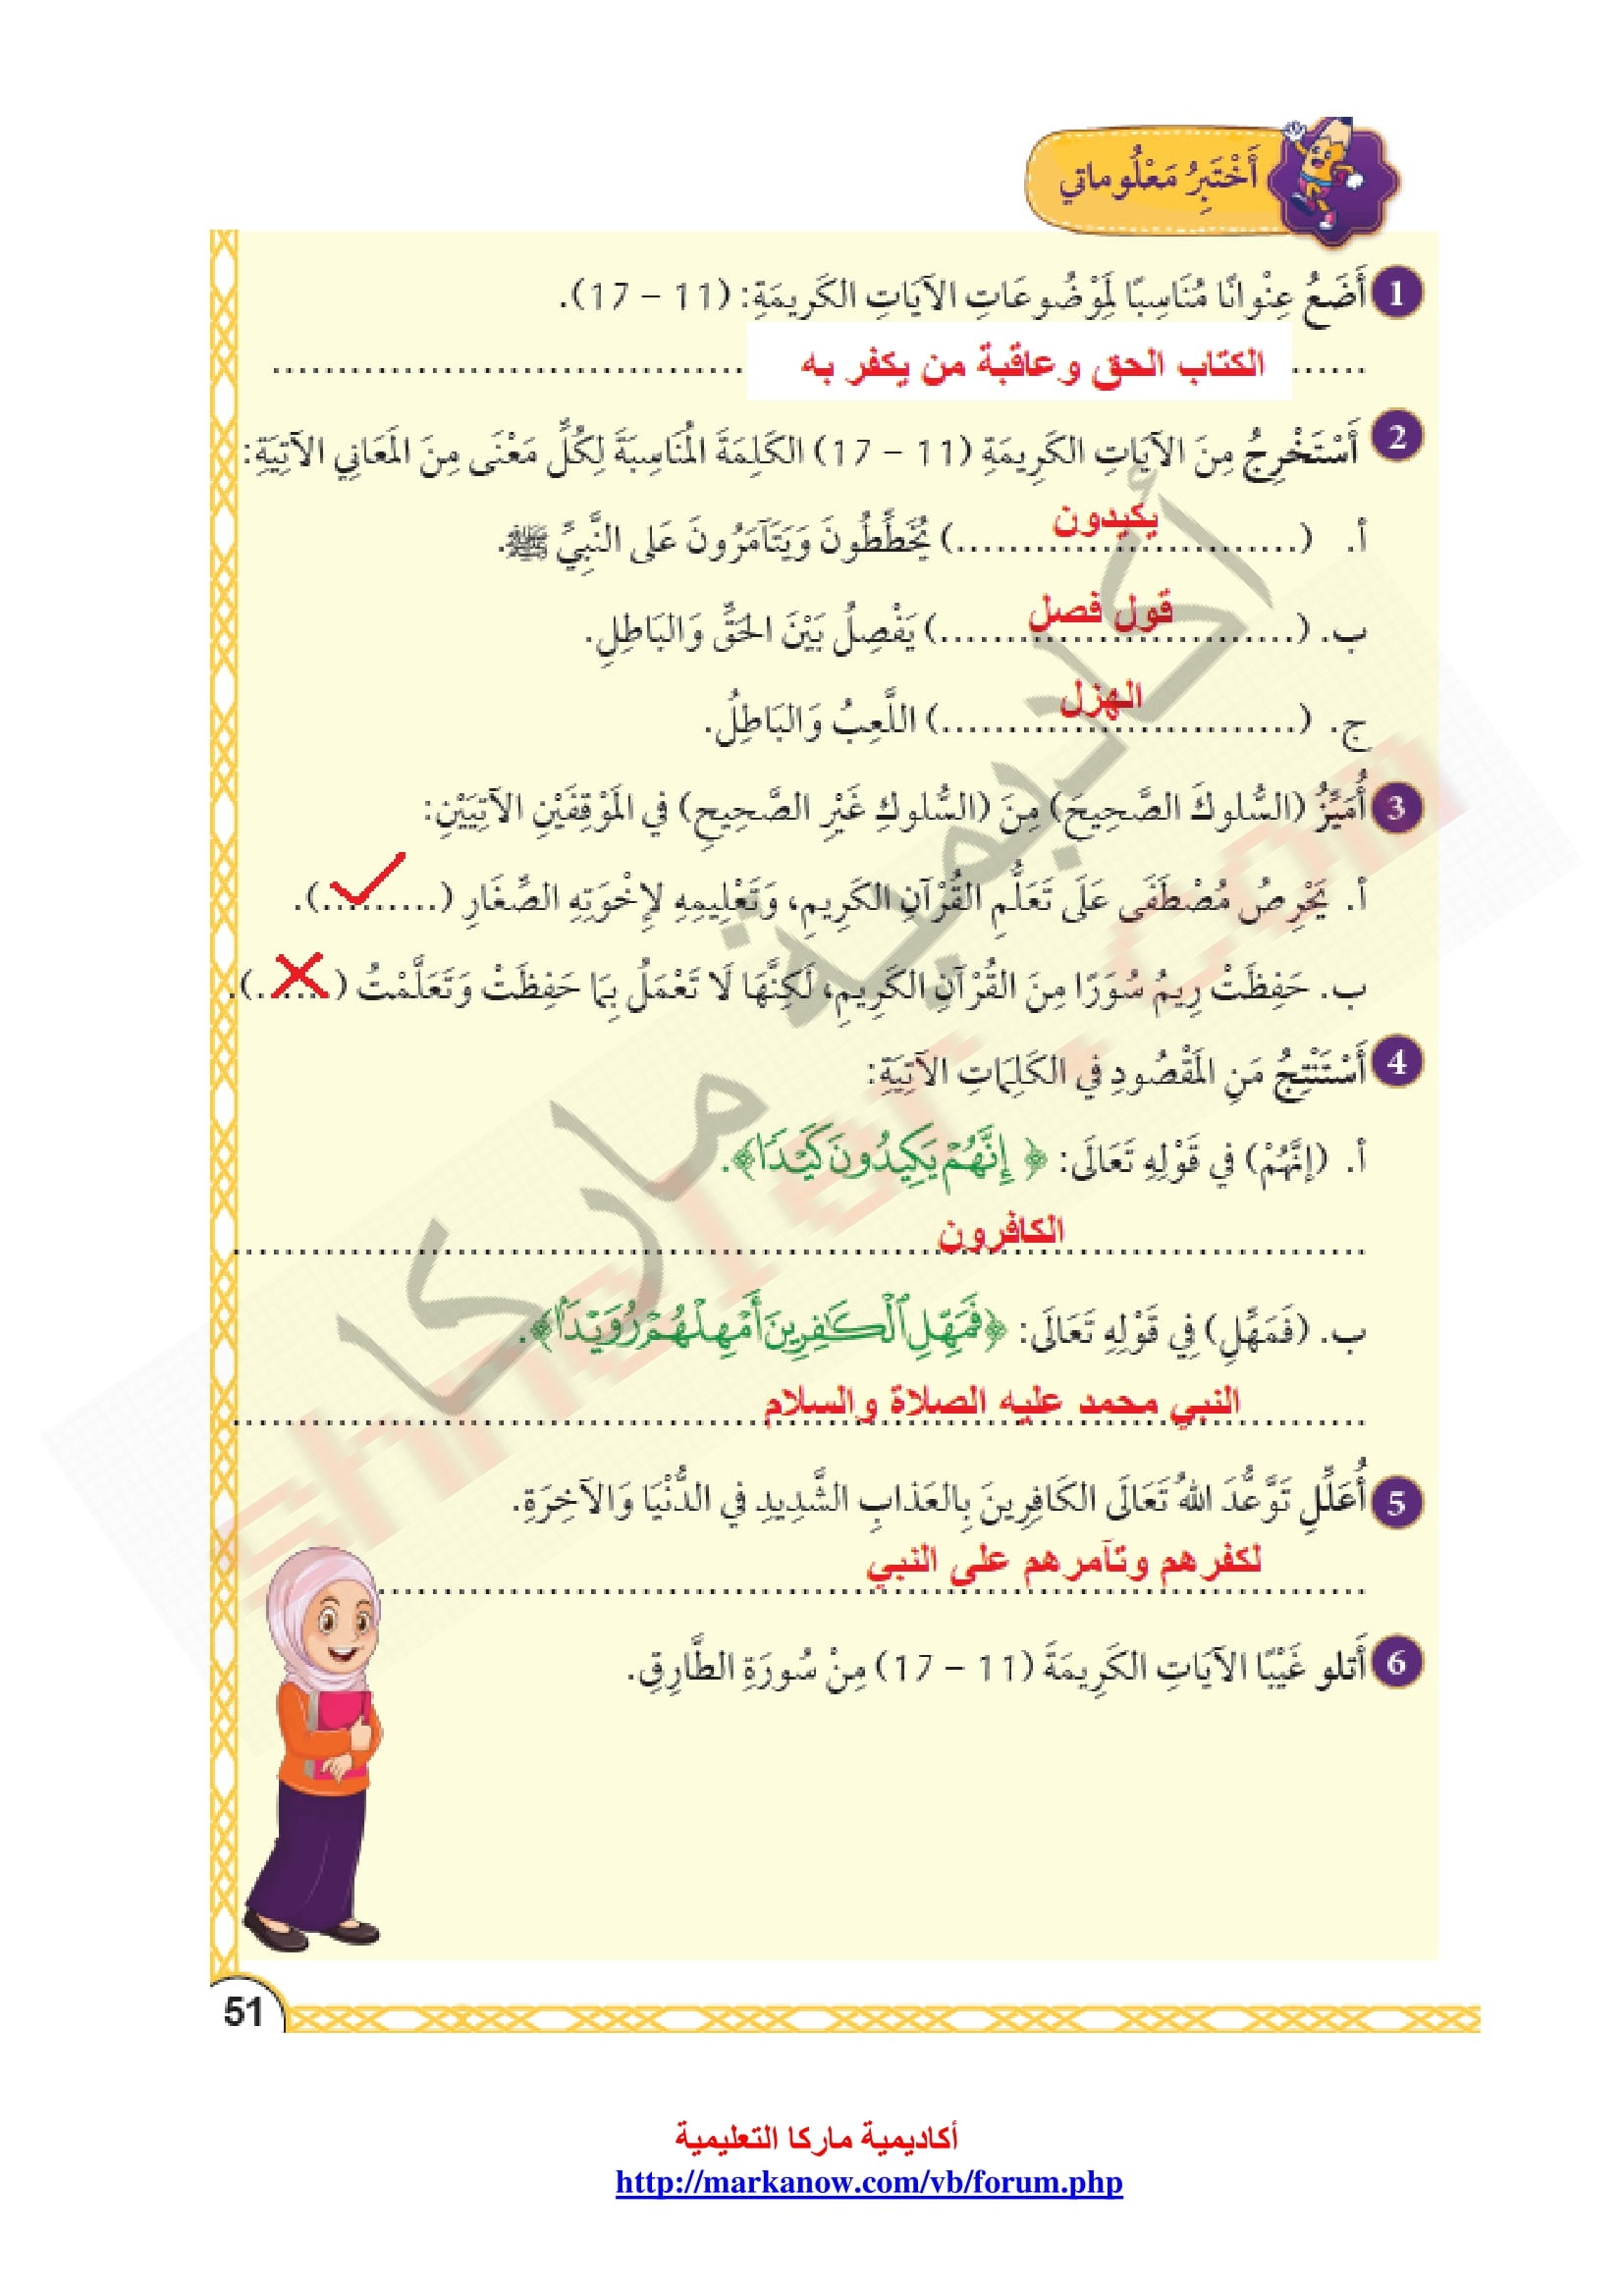 أَخْتَبِرُ مَعْلُوماتي
1 أَضَعُ عِنْوانًا مُنَاسِبًا لِمَوْضُوعَاتِ الآيَاتِ الكَريمَةِ: (11 – 17).
الكتاب الحق وعاقبة من يكفر به
2 أَسْتَخْرِجُ مِنَ الآيَاتِ الكَرِيمَةِ (11 – 17) الكَلِمَةَ المُنَاسِبَةَ لِكُلِّ مَعْنَى مِنَ المَعَانِي الآتِيَةِ:
أ. (يكيدون) يُخَطِّطُونَ وَيَتَآمَرُونَ عَلى النَّبِيِّ ﷺ.
ب. (قول فصل) يَفْصِلُ بَيْنَ الحَقِّ وَالبَاطِلِ.
ج. (الهزل) اللَّعِبُ وَالبَاطِلُ.
3 أُمَيِّزُ (السُّلوكَ الصَّحِيحَ) مِنَ (السُّلوكِ غَيْرِ الصَّحِيحِ) في المَوْقِفَيْنِ الآتِيَيْنِ:
أ. يَحْرِصُ مُصْطَفَى عَلَى تَعَلُّمِ القُرْآنِ الكَرِيمِ، وَتَعْلِيمِهِ لِإخْوَتِهِ الصِّغَارِ (✓).
ب. حَفِظَتْ رِيمُ سُوَرًا مِنَ القُرْآنِ الكَرِيمِ، لَكِنَّهَا لَا تَعْمَلُ بِمَا حَفِظَتْ وَتَعَلَّمْتُ (✗).
4 أَسْتَنْتِجُ مَنِ المَقْصُودِ في الكَلِمَاتِ الآتِيَةِ:
أ. (إنَّهُمْ) في قَوْلِهِ تَعَالَى: ﴿ إِنَّهُمْ يَكِيدُونَ كَيْدًا﴾.
الكافرون
ب. (فَمَهِّلِ) فِي قَوْلِهِ تَعَالَى: ﴿فَمَهِّلِ ٱلْكَافِرِينَ أَمْهِلْهُمْ رُوَيْدًا﴾.
النبي محمد عليه الصلاة والسلام
5 أُعَلِّلِ تَوَّعُّدَ اللهُ تَعَالَى الكَافِرِينَ بِالعَذابِ الشَّدِيدِ في الدُّنْيَا وَالآخِرَةِ.
لكفرهم وتآمرهم على النبي
6 أَتلو غَيْبًا الآيَاتِ الكَرِيمَةَ (11 – 17) مِنْ سُورَةِ الطَّارِقِ.
51
أكاديمية ماركا التعليمية
http://markanow.com/vb/forum.php
أكاديمية ماركا